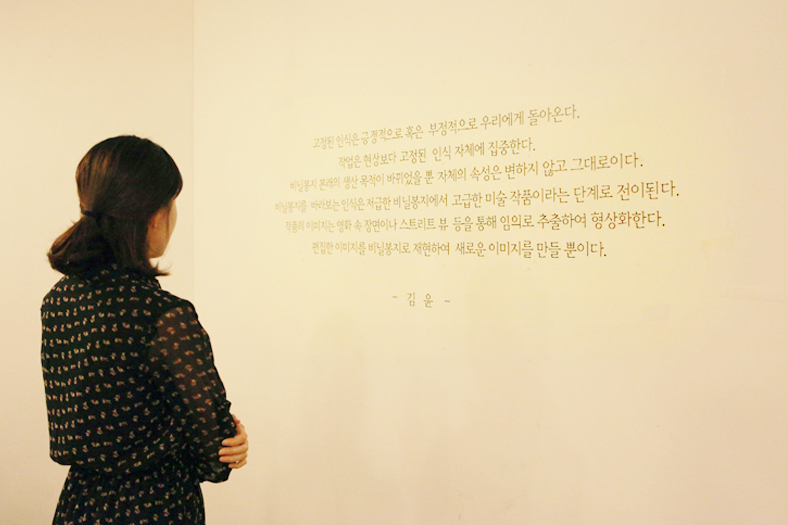 고정된 인식은 긍정적으로 혹은 부정적으로 우리에게 돌아온다.
작업은 현상보다 고정된 인식 자체에 집중한다.
비닐봉지 본래의 생산 목적이 바뀌었을 뿐 자체의 속성은 변하지 않고 그대로이다.
비닐봉지를 바라보는 인식은 저급한 비닐봉지에서 고급한 미술 작품이라는 단계로 전이된다.
작품의 이미지는 영화 속 장면이나 스트리트 뷰 등을 통해 임의로 추출하여 형상화한다.
편집한 이미지를 비닐봉지로 재현하여 새로운 이미지를 만들 뿐이다.
~ 김 윤 ~